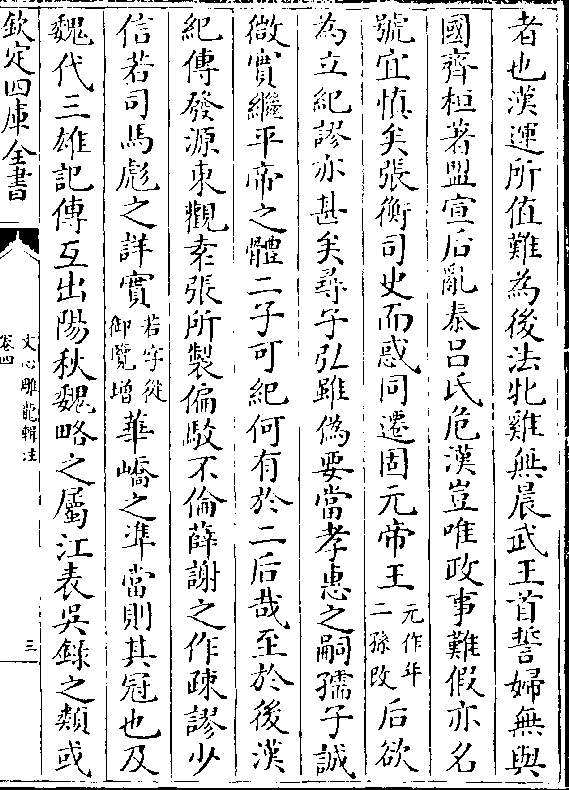 者也漢運所值難為後法牝雞無晨武王首誓婦無與
國齊桓著盟宣后亂秦呂氏危漢豈唯政事難假亦名
號宜慎矣張衡司史而惑同遷固元帝王元作年二孫改后欲
為立紀謬亦甚矣尋子弘雖偽要當孝惠之嗣孺子誠
微實繼平帝之體二子可紀何有於二后哉至於後漢
紀傳發源東觀袁張所製偏駁不倫薛謝之作疎謬少
信若司馬彪之詳實若字從御覽增華嶠之準當則其冠也及
魏代三雄記傳互出陽秋魏略之屬江表吳錄之類或
欽定四庫全書
文心雕龍輯注
卷四
三